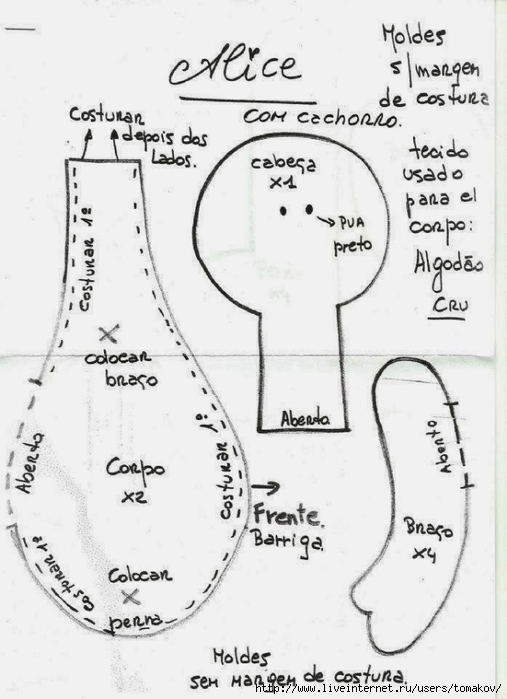 Alice
com cachorro.
Moldes
s/margen
de costura
tecido
usado
para el
corpo:
Algodão
Cru
Costurar
depois dos
Lados.
Costurar 1º
colocar
braço
Aberto
Corpo
x2
Costurar 1º
Costurar 1º
Colocar
perna
Frente.
Barriga.
cabeça
x1
PUA
preto
Aberto
Aberto
Braço
x4
Moldes
sem margem de costura.
http://www.liveinternet.ru/users/tomakov/